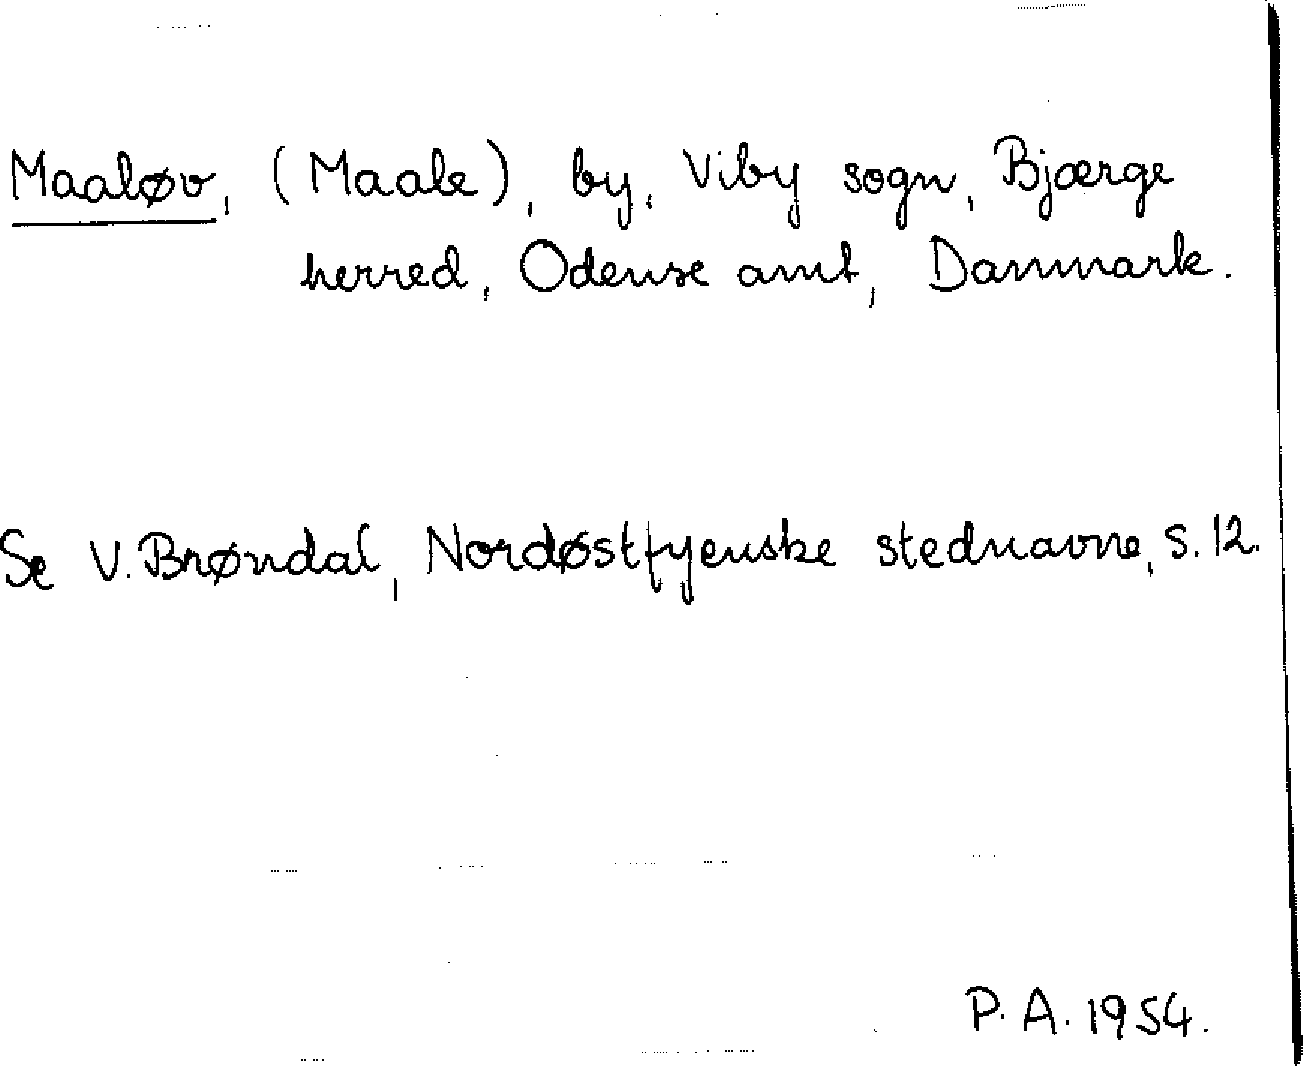 Maaløv, (Maale), by, Viby sogn, Bjærge
herred, Odense amt, Danmark.
Se V. Brøndal, Nordøstfyenske stednavne, s. 12.
P. A. 1954.